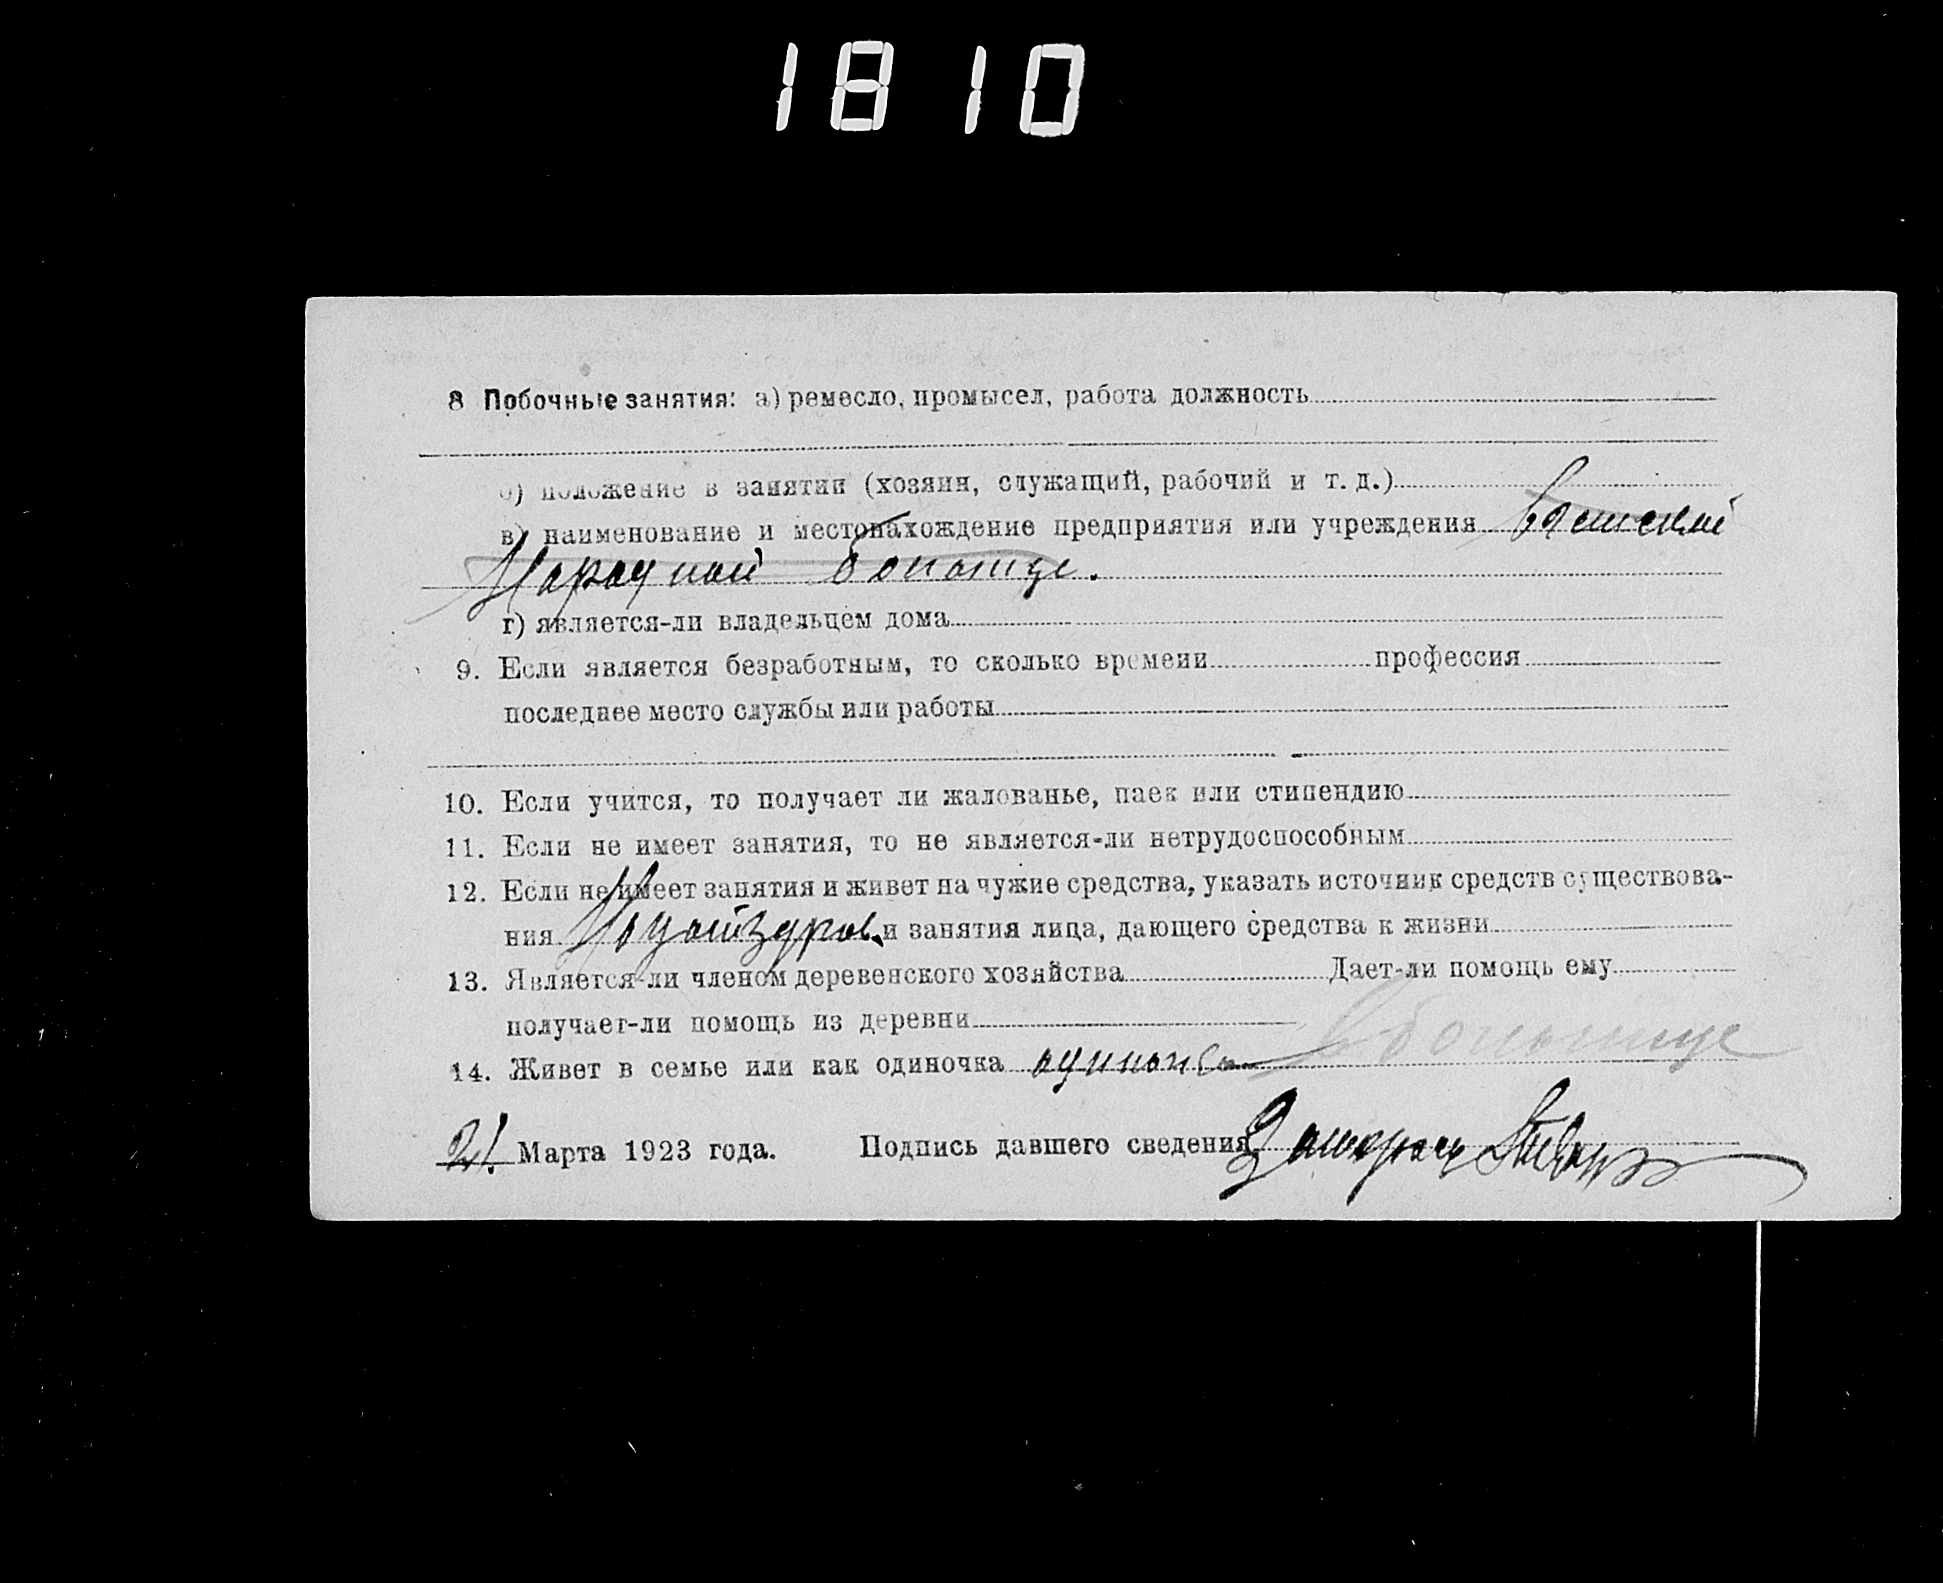 1810
8 Побочные занятия: а) ремесло, промысел, работа должность
б) положение в занятии (хозяин, служащий, рабочий и т. д.)
в) наименование и местонахождение предприятия или учреждения
больнице.
г) является-ли владельцем дома
9. Если является безработным, то сколько времени профессия
последнее место службы или работы
10. Если учится, то получает ли жалованье, паек или стипендию
11. Если не имеет занятия, то не является-ли нетрудоспособным
12. Если не имеет занятия и живет на чужие средства, указать источник средств существова-
ния и занятия лица, дающего средства к жизни
13. Является-ли членом деревенского хозяйства Дает-ли помощь ему
получает-ли помощь из деревни
14. Живет в семье или как одиночка одиночка в больнице
21. Марта 1923 года. Подпись давшего сведения